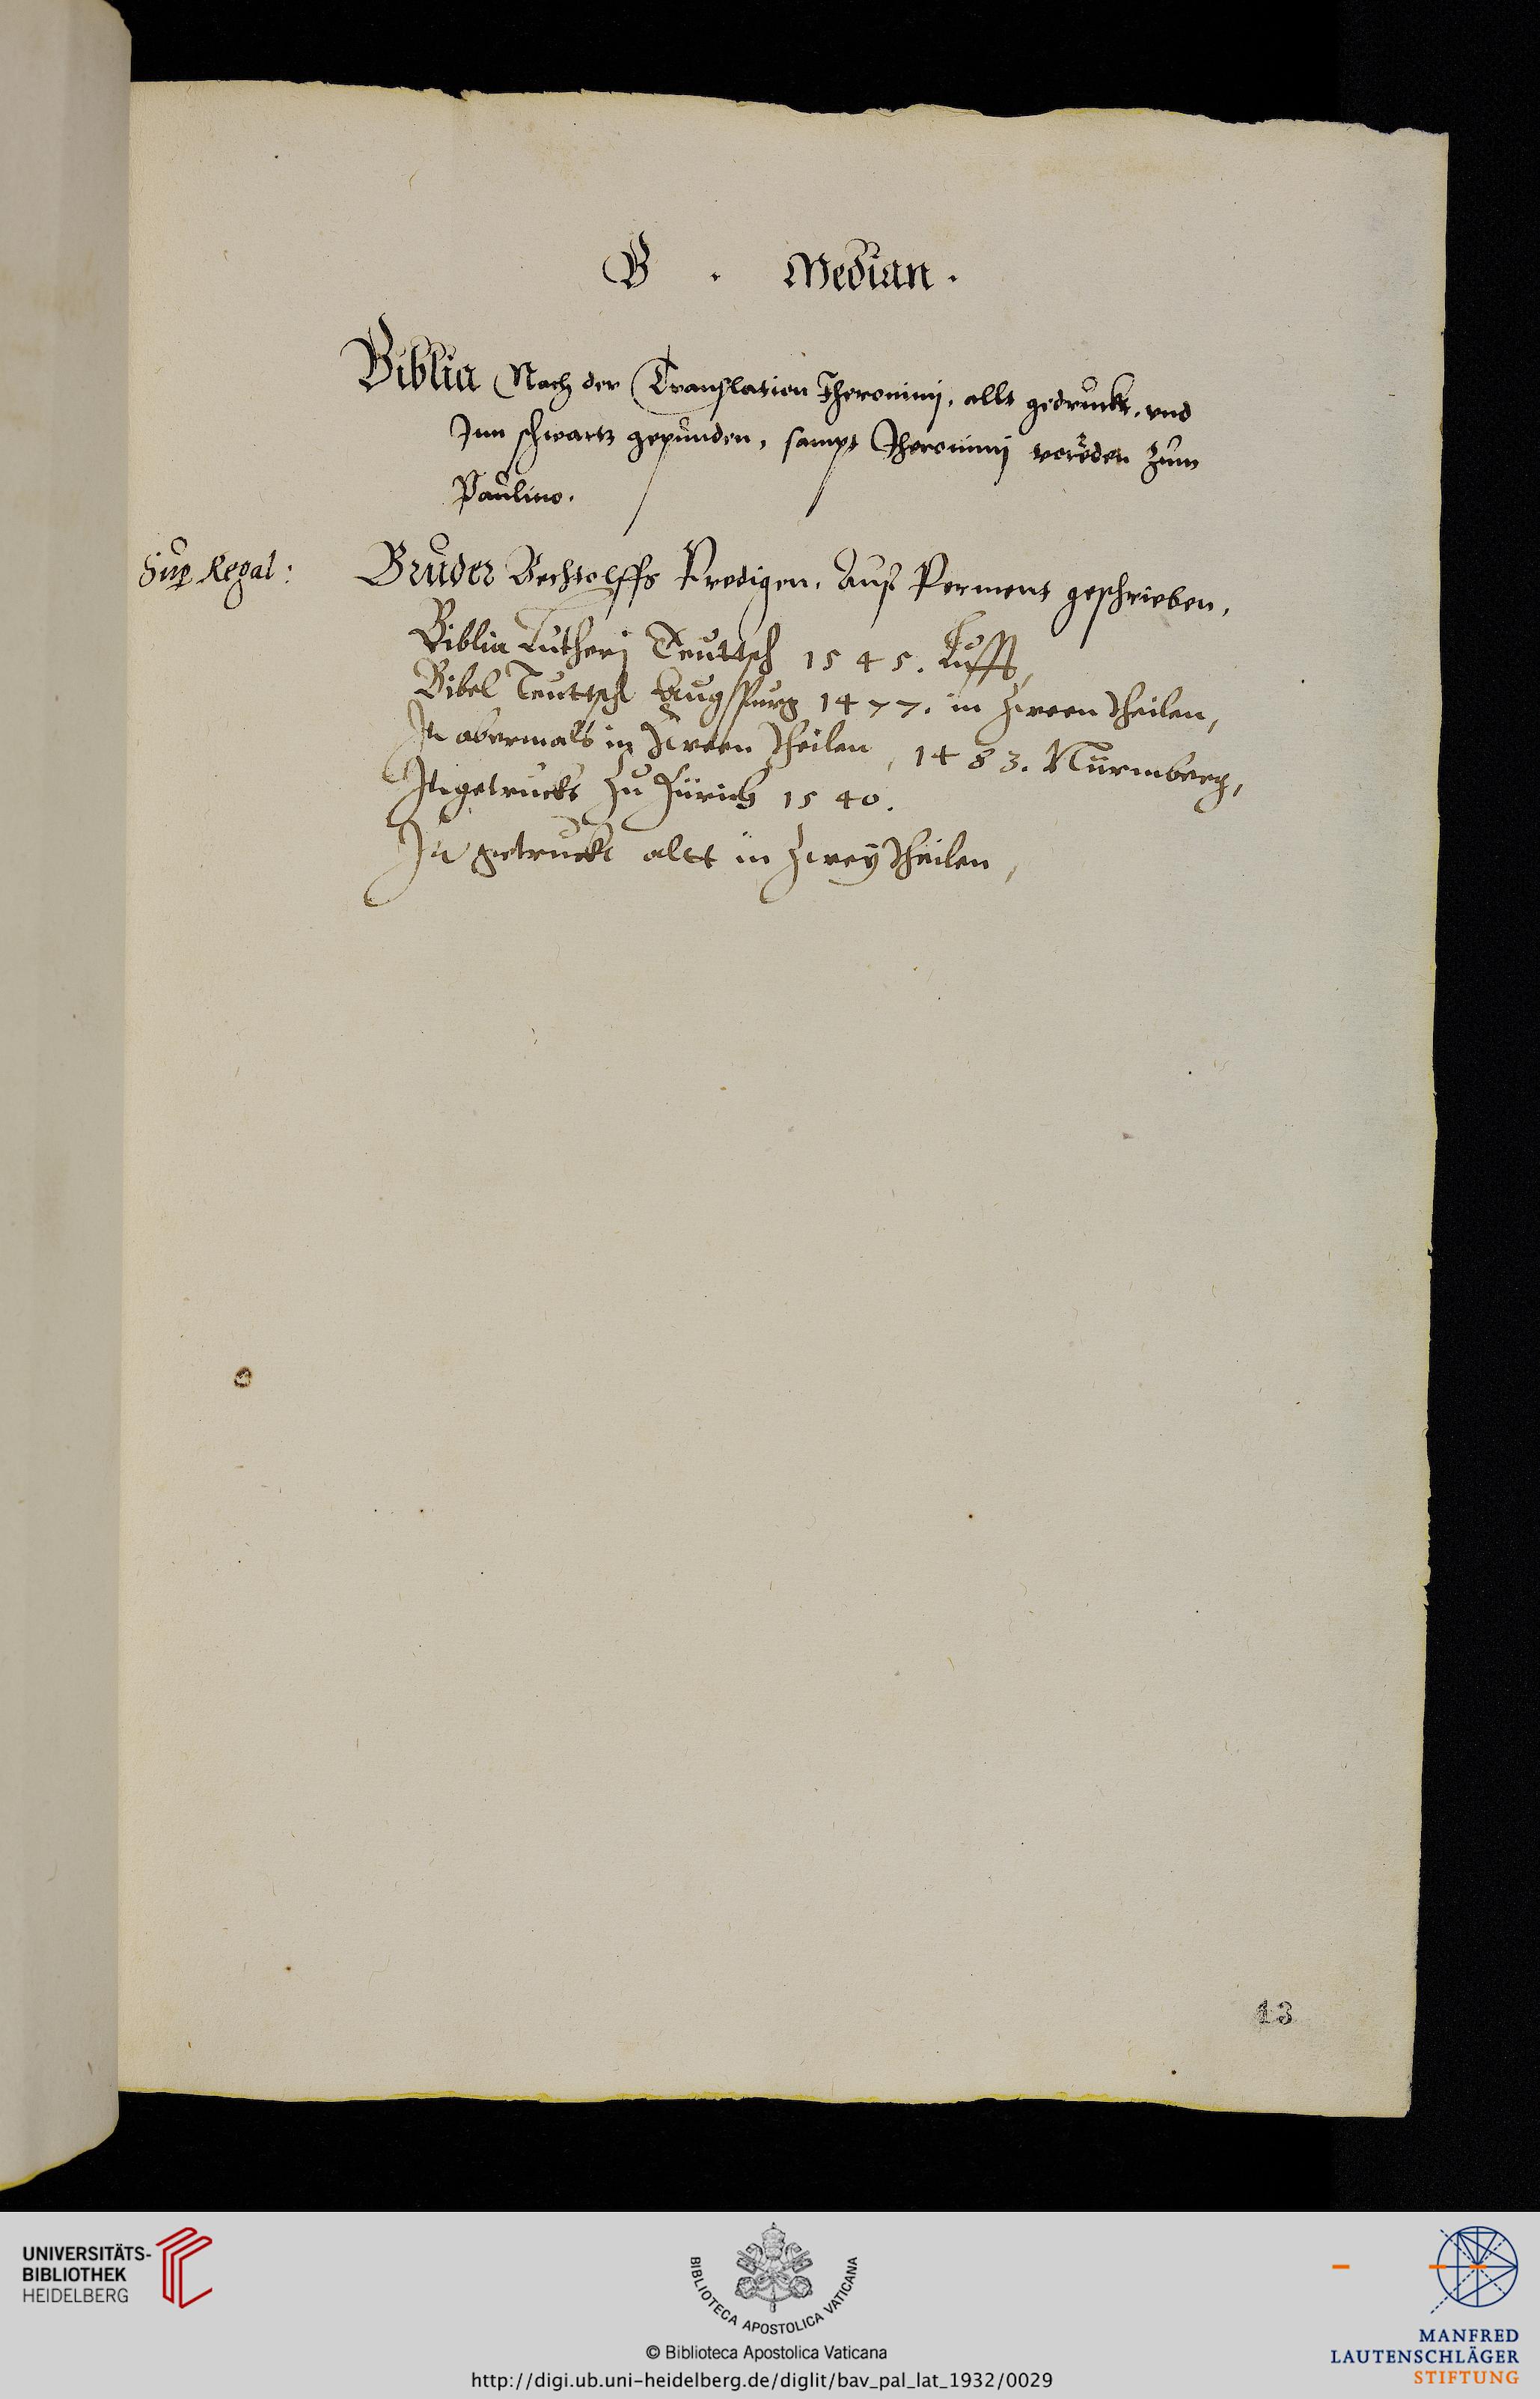 B . Median.
Biblia Nach der Translation Iheronimj, allt gedruckt, vnd
Inn schwartz gepunden, sampt Iheronimj vorreden zum
Paulino.
Sup Regal: Bruder Bechtolffs Predigen. Auß Perment geschrieben,
Biblia Lutherj Teuttsch 1545. Lufft,
Bibel Teuttsch Augspurg 1477. in zween theilen,
It abermals in zween theilen, 1483. Nürmberg,
It getruckt zu Zürich 1540.
It getruckt altt in zwey theilen,
13
UNIVERSITÄTS-
BIBLIOTHEK
HEIDELBERG
BIBLIOTECA APOSTOLICA VATICANA
© Biblioteca Apostolica Vaticana
http://digi.ub.uni-heidelberg.de/diglit/bav_pal_lat_1932/0029
MANFRED
LAUTENSCHLÄGER
STIFTUNG